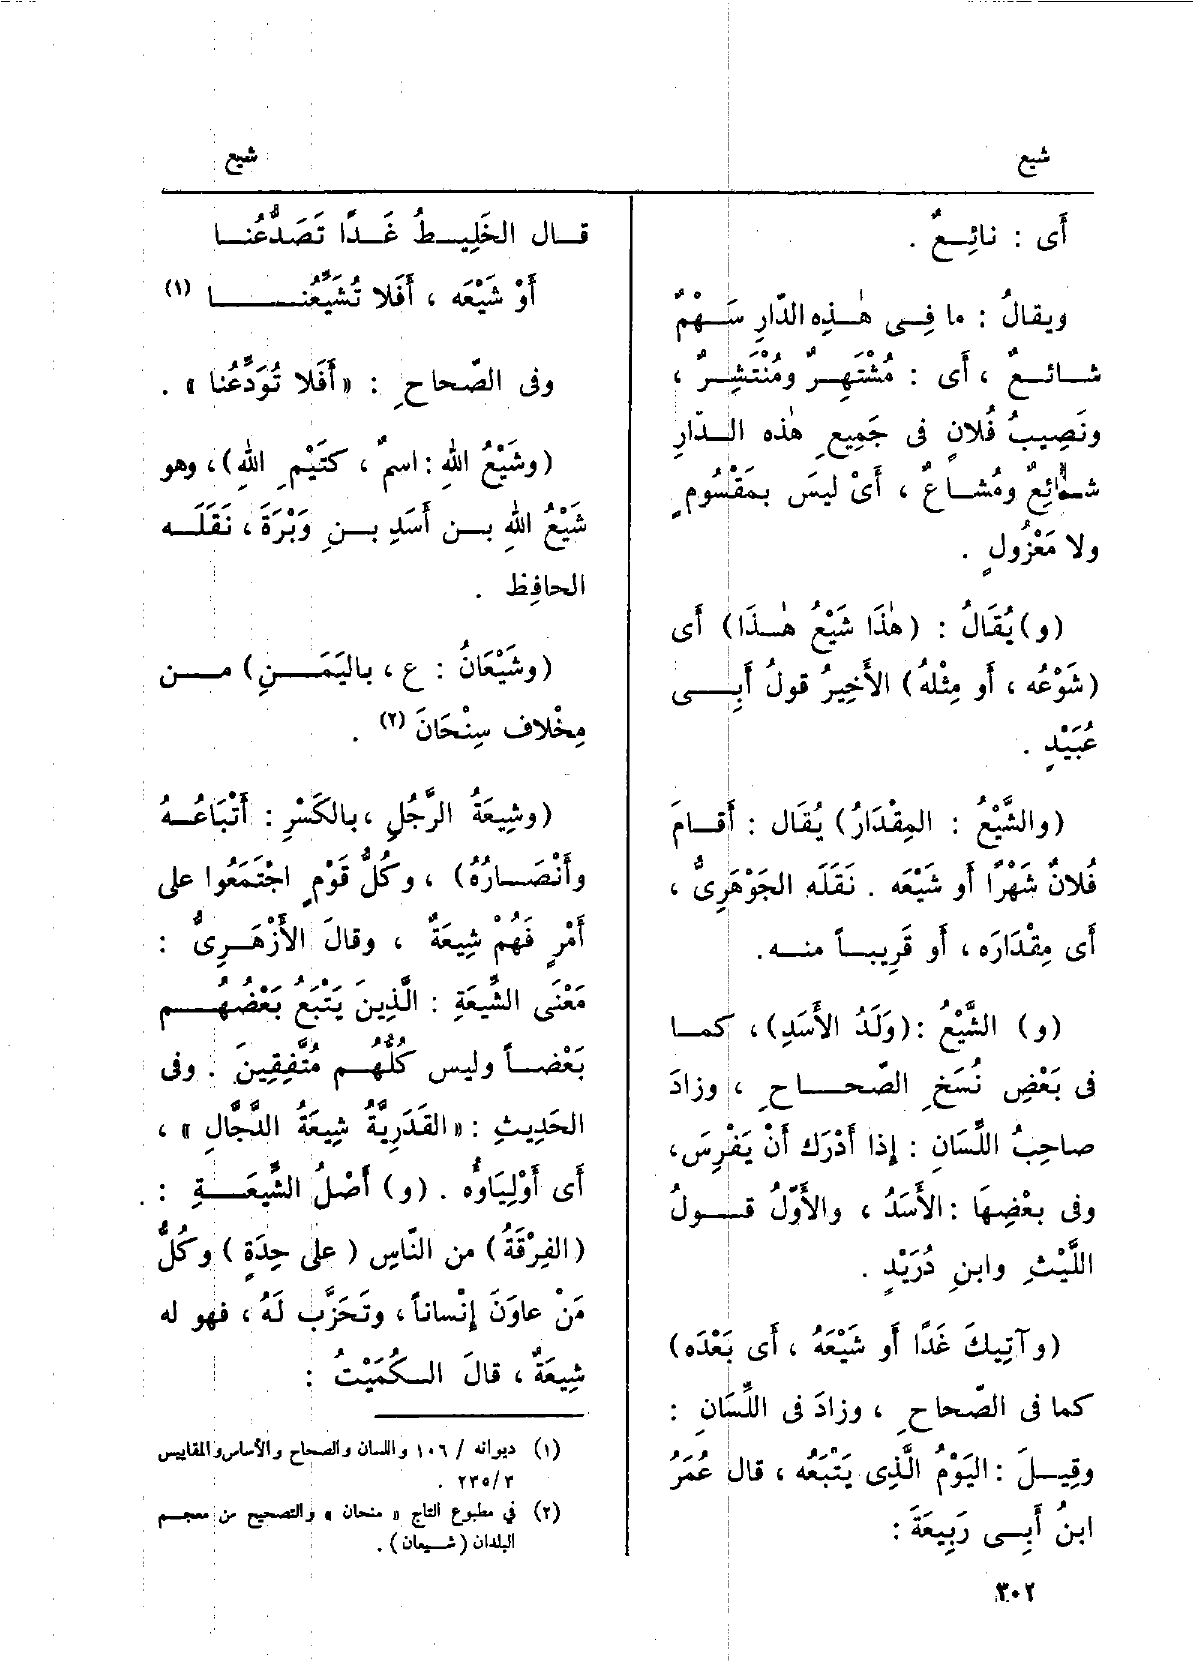 شيع
شيع
أَى : نائِـعٌ .
ويقالُ : ما فِـى هٰـذِه الدّارِ سَـهْمٌ
شـائـعٌ ، أَى : مُشْتَهِـرٌ ومُنْتَشِـرٌ ،
ونَصِيبُ فُلانٍ فى جَمِيعِ هٰذه الـدّارِ
شـائِعٌ ومُشـاعٌ ، أَىْ ليسَ بمَقْسُومٍ
ولا مَعْزُولٍ .
(و)يُقَالُ : (هٰذَا شَيْعُ هـٰذَا) أَى
(شَوْعُه ، أَو مِثْلهُ) الأَخِيرُ قولُ أَبِــى
عُبَيْدٍ .
(والشَّيْعُ : المِقْدَارُ) يُقَال : أَقـامَ
فُلانٌ شَهْرًا أَو شَيْعَه . نَقَلَه الجَوْهَرِىُّ ،
أَى مِقْدَارَه ، أَو قَرِيبـاً منـه.
(و) الشَّيْعُ :(وَلَدُ الأَسَدِ)، كمـا
فى بَعْضِ نُسَخِ الصّحــاحِ ، وزادَ
صاحِبُ اللِّسَانِ : إِذا أَدْرَك أَنْ يَفْرِسَ،
وفى بعْضِهَا :الأَسَدُ ، والأَوّلُ قـولُ
اللَّيْثِ وابنِ دُرَيْدٍ .
(وآتِيكَ غَدًا أَو شَيْعَهُ ، أَى بَعْدَه)
كما فى الصّحاحِ ، وزادَ فى اللِّسَانِ :
وقِيـلَ :اليَوْمُ الَّذِى يَتْبَعُه ، قال عُمَرُ
ابنُ أَبِـى رَبِيعَةَ :
قـال الخَلِيـطُ غَـدًا تَصَدُّعُنـا
أَوْ شَيْعَه ، أَفَلا تُشَيِّعُنــــا (١)
وفى الصّحاحِ : «أَفَلا تُوَدِّعُنا» .
(وشَيْعُ اللهِ :اسمٌ ، كتَيْمِ اللهِ)، وهو
شَيْعُ اللهِ بـن أَسَدِ بـنِ وَبْرَةَ، نَقَلَـه
الحافِظ .
(وشَيْعَانُ : ع ، باليَمَـنِ) مـن
مِخْلاف سِنْحَانَ (٢) .
(وشِيعَةُ الرَّجُلِ ،بالكَسْرِ : أَتْبَاعُـهُ
وأَنْصَـارُهُ) ، وكُلُّ قَوْمٍ اجْتَمَعُوا على
أَمْرٍ فَهُمْ شِيعَةٌ ، وقالَ الأَزْهَـرِىُّ :
مَعْنَى الشِّيعَةِ : الَّذِينَ يَتْبَعُ بَعْضُهُـم
بَعْضـاً وليس كُلُّهُـم مُتَّفِقِينَ . وفى
الحَدِيثِ :«القَدَرِيَّةُ شِيعَةُ الدَّجّالِ » ،
أَى أَوْلِيَاوُّه . (و) أَصْلُ الشِّيعَــةِ :
(الفِرْقَةُ) من النّاسِ ( على حِدَةٍ ) وكُلُّ
مَنْ عاوَنَ إِنْساناً ، وتَحَزَّب لَهُ ، فهو له
شِيعَةٌ ، قالَ الـكُمَيْتُ :
(١) ديوانه / ١٠٦ واللسان والصحاح والأساس والمقاييس
٢٣٥/٣ .
(٢) في مطبوع التاج « منحان » والتصحيح من معجـم
البلدان (شـيعان) .
٣٠٢